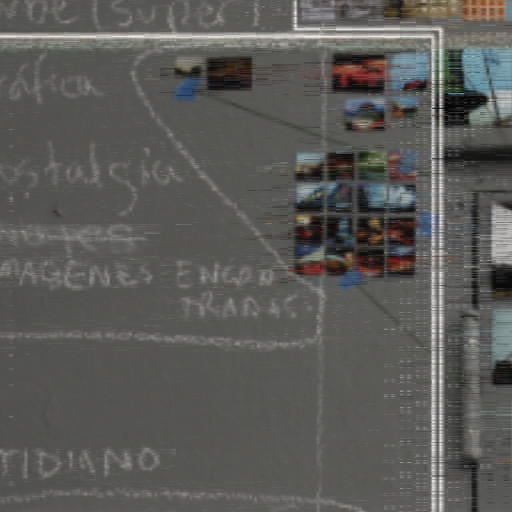 (super)
ráfica
ostalgia
IMAGENES ENCON
TRADAS.
TIDIANO